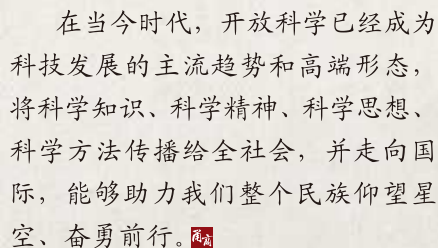 在当今时代，开放科学已经成为
科技发展的主流趋势和高端形态，
将科学知识、科学精神、科学思想、
科学方法传播给全社会，并走向国
际，能够助力我们整个民族仰望星
空、奋勇前行。